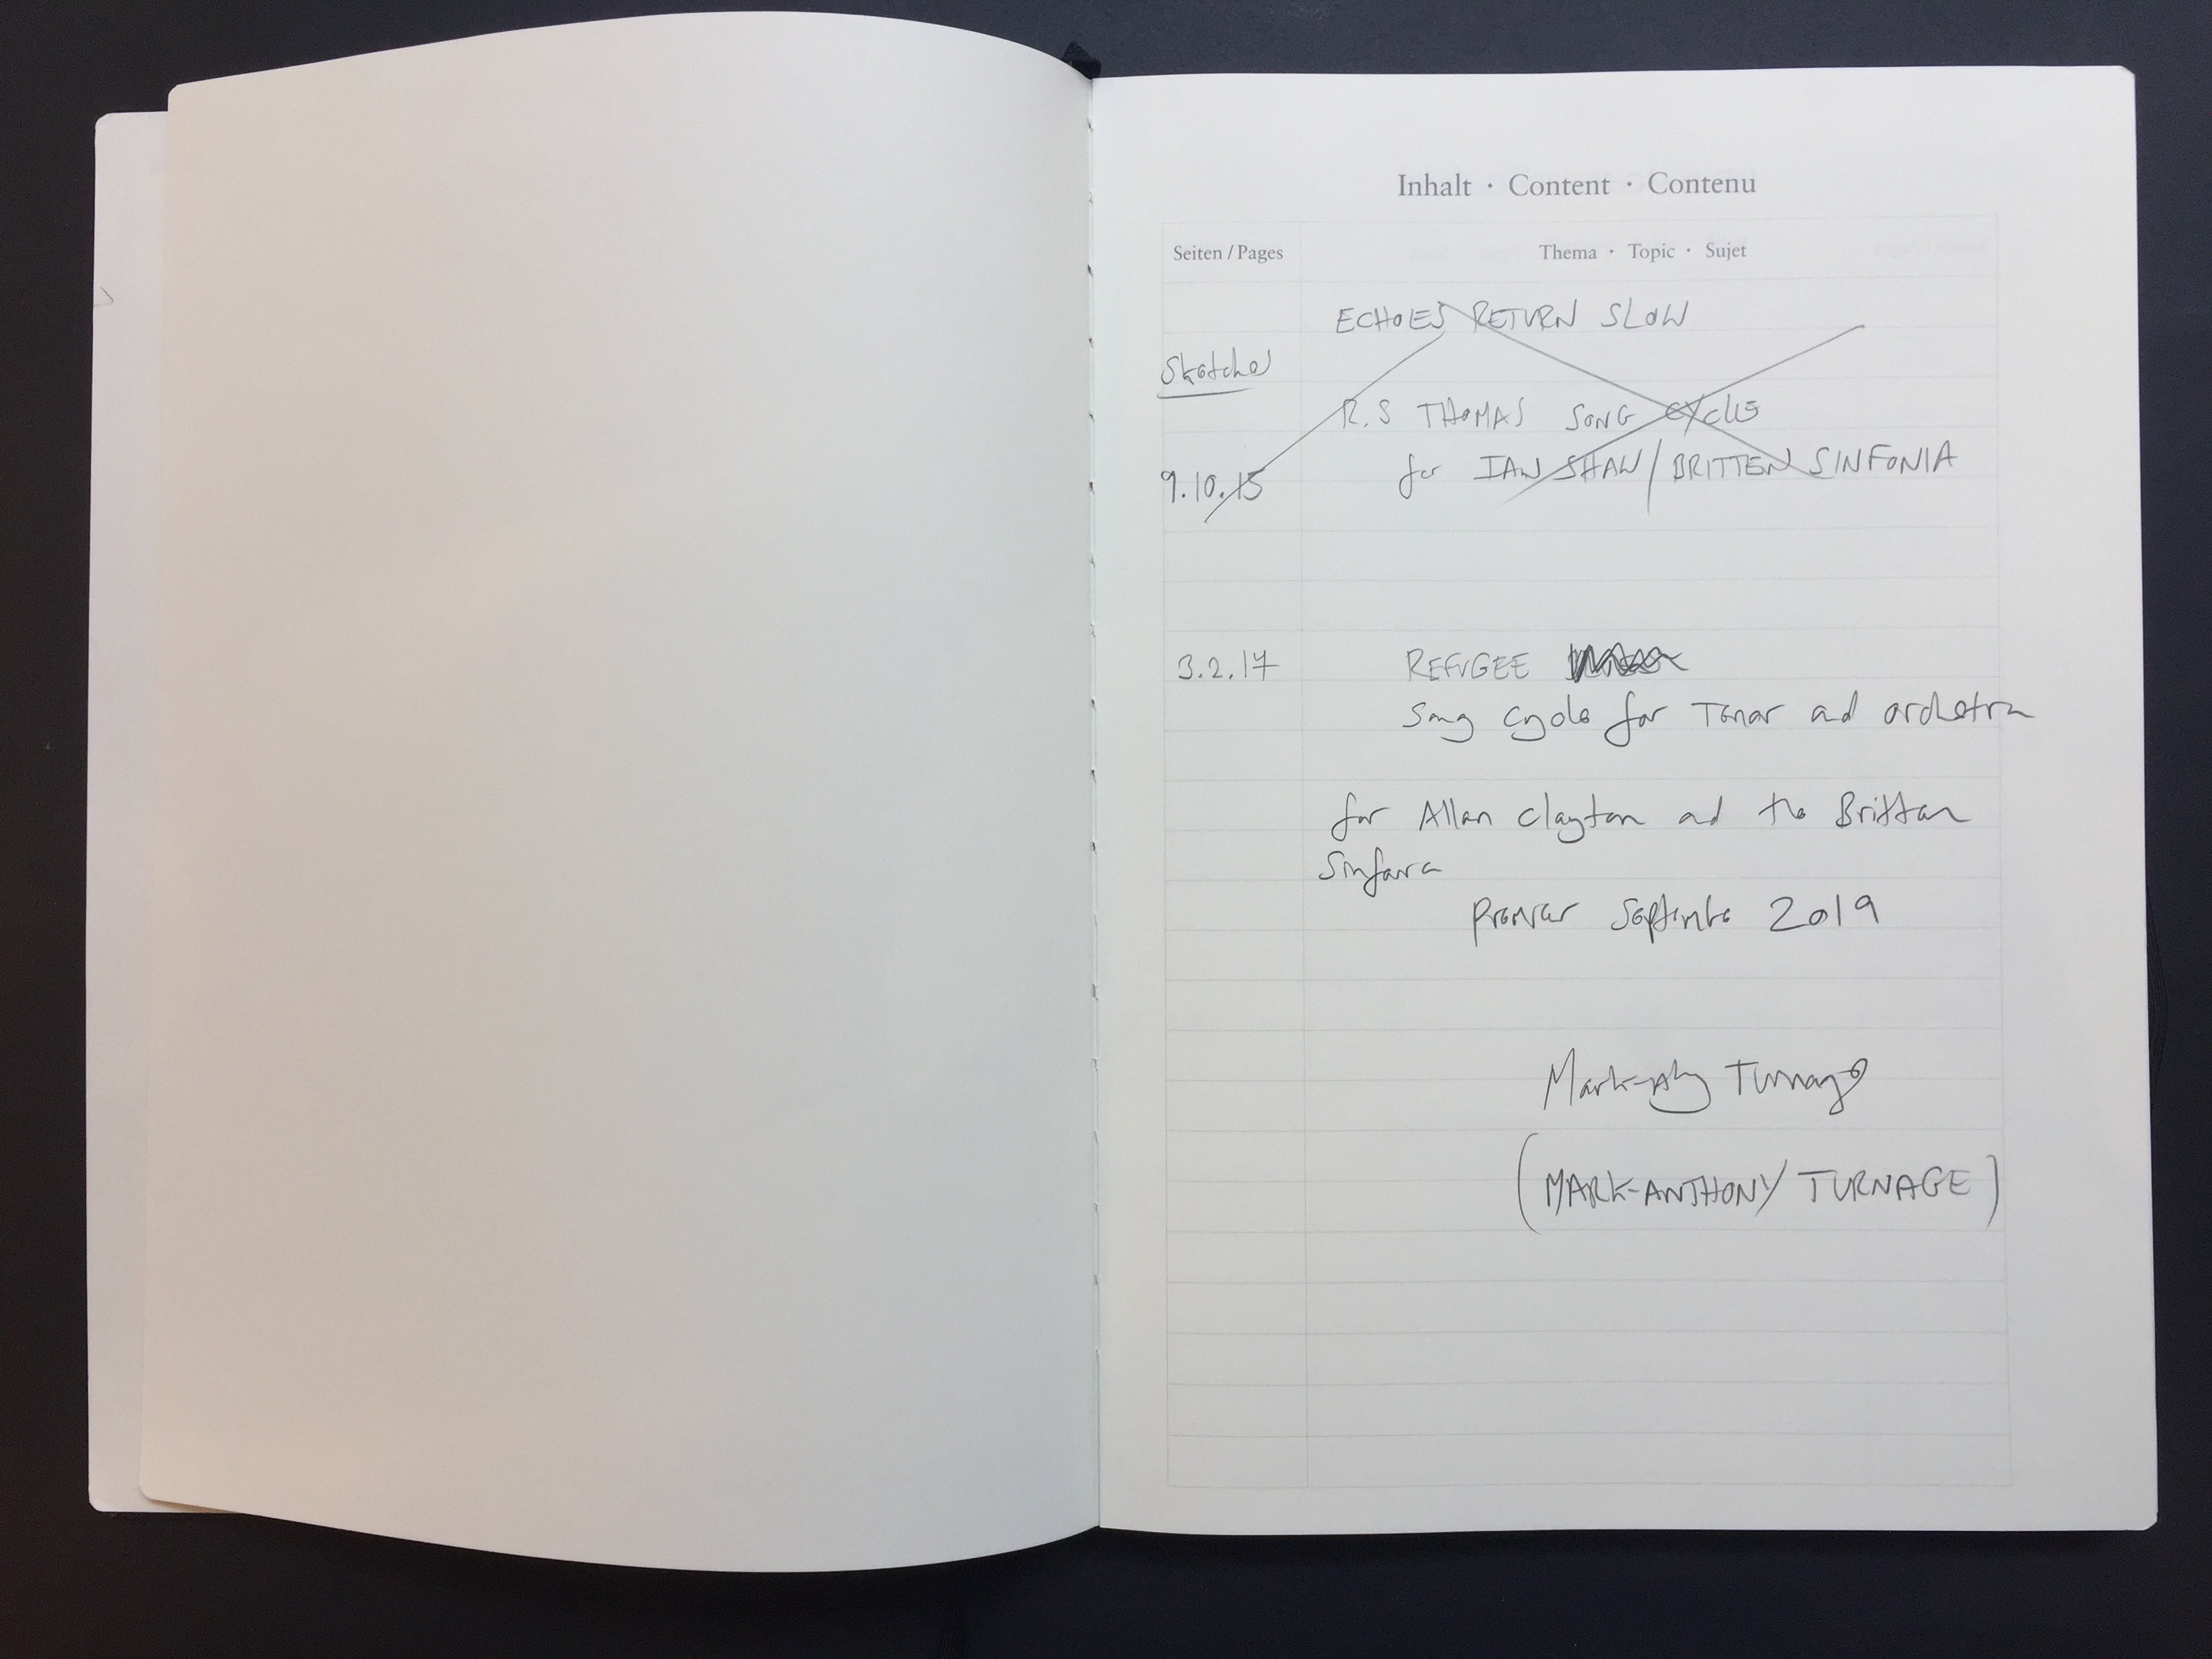 Inhalt · Content · Contenu
Seiten / Pages Thema · Topic · Sujet
ECHOES RETURN SLOW
Sketches
R.S THOMAS SONG CYCLE
9.10.15 for IAN SHAW / BRITTEN SINFONIA
3.2.17 REFUGEE
Song cycle for Tenor and orchestra
for Allan Clayton and the Britten
Sinfonia
Premier September 2019
Mark-Anthony Turnage
(MARK-ANTHONY TURNAGE)